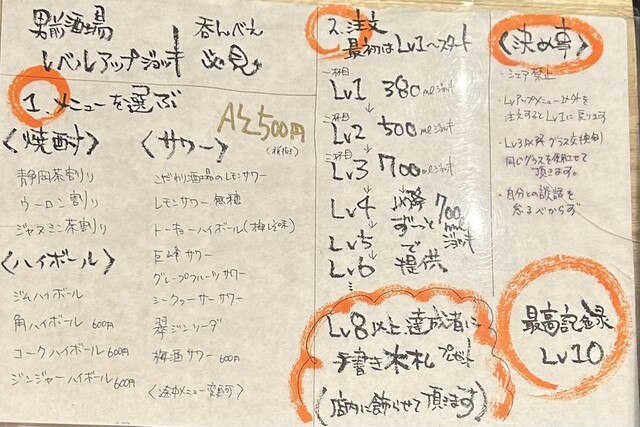 男前酒場 呑んべえ
レベルアップジョッキ 必見
1.メニューを選ぶ
A4 500円
(税抜)
〈焼酎〉
静岡茶割り
ウーロン割り
ジャスミン茶割り
〈ハイボール〉
ジムハイボール
角ハイボール 600円
コークハイボール 600円
ジンジャーハイボール 600円
〈サワー〉
こだわり酒場のレモンサワー
レモンサワー 無糖
トーキョーハイボール(梅風味)
巨峰サワー
グレープフルーツサワー
シークヮーサーサワー
翠ジンソーダ
梅酒サワー 600円
〈途中メニュー変更可〉
2.注文
最初はLv1〜スタート
一杯目
Lv1 380mlジョッキ
二杯目
Lv2 500mlジョッキ
三杯目
Lv3 700mlジョッキ
Lv4
Lv5
Lv6
以降 700mlジョッキ
ずーっとで
提供
Lv8以上達成者に
手書き木札プレゼント
(店内に飾らせて頂きます)
〈決め事〉
・シェア禁止
・Lvアップメニュー以外を
注文するとLv1に戻ります
・Lv3以降グラス交換制
同じグラスを使わせて
頂きます。
・自分との談話を
怠るべからず
最高記録
Lv10